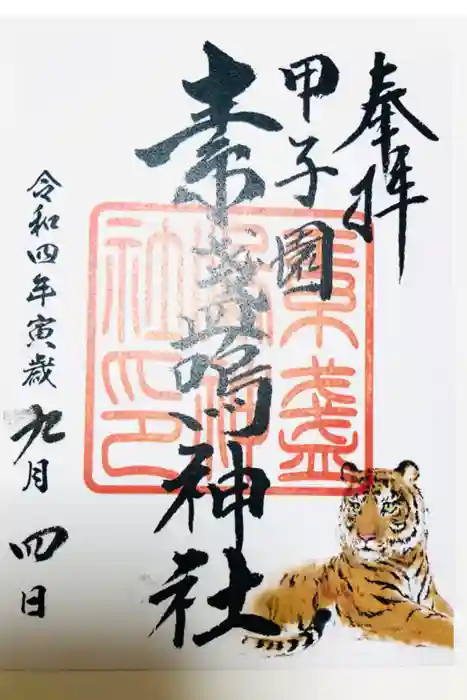 奉拝
甲子園
素盞嗚神社
素盞嗚神社印
令和四年寅歳
九月四日